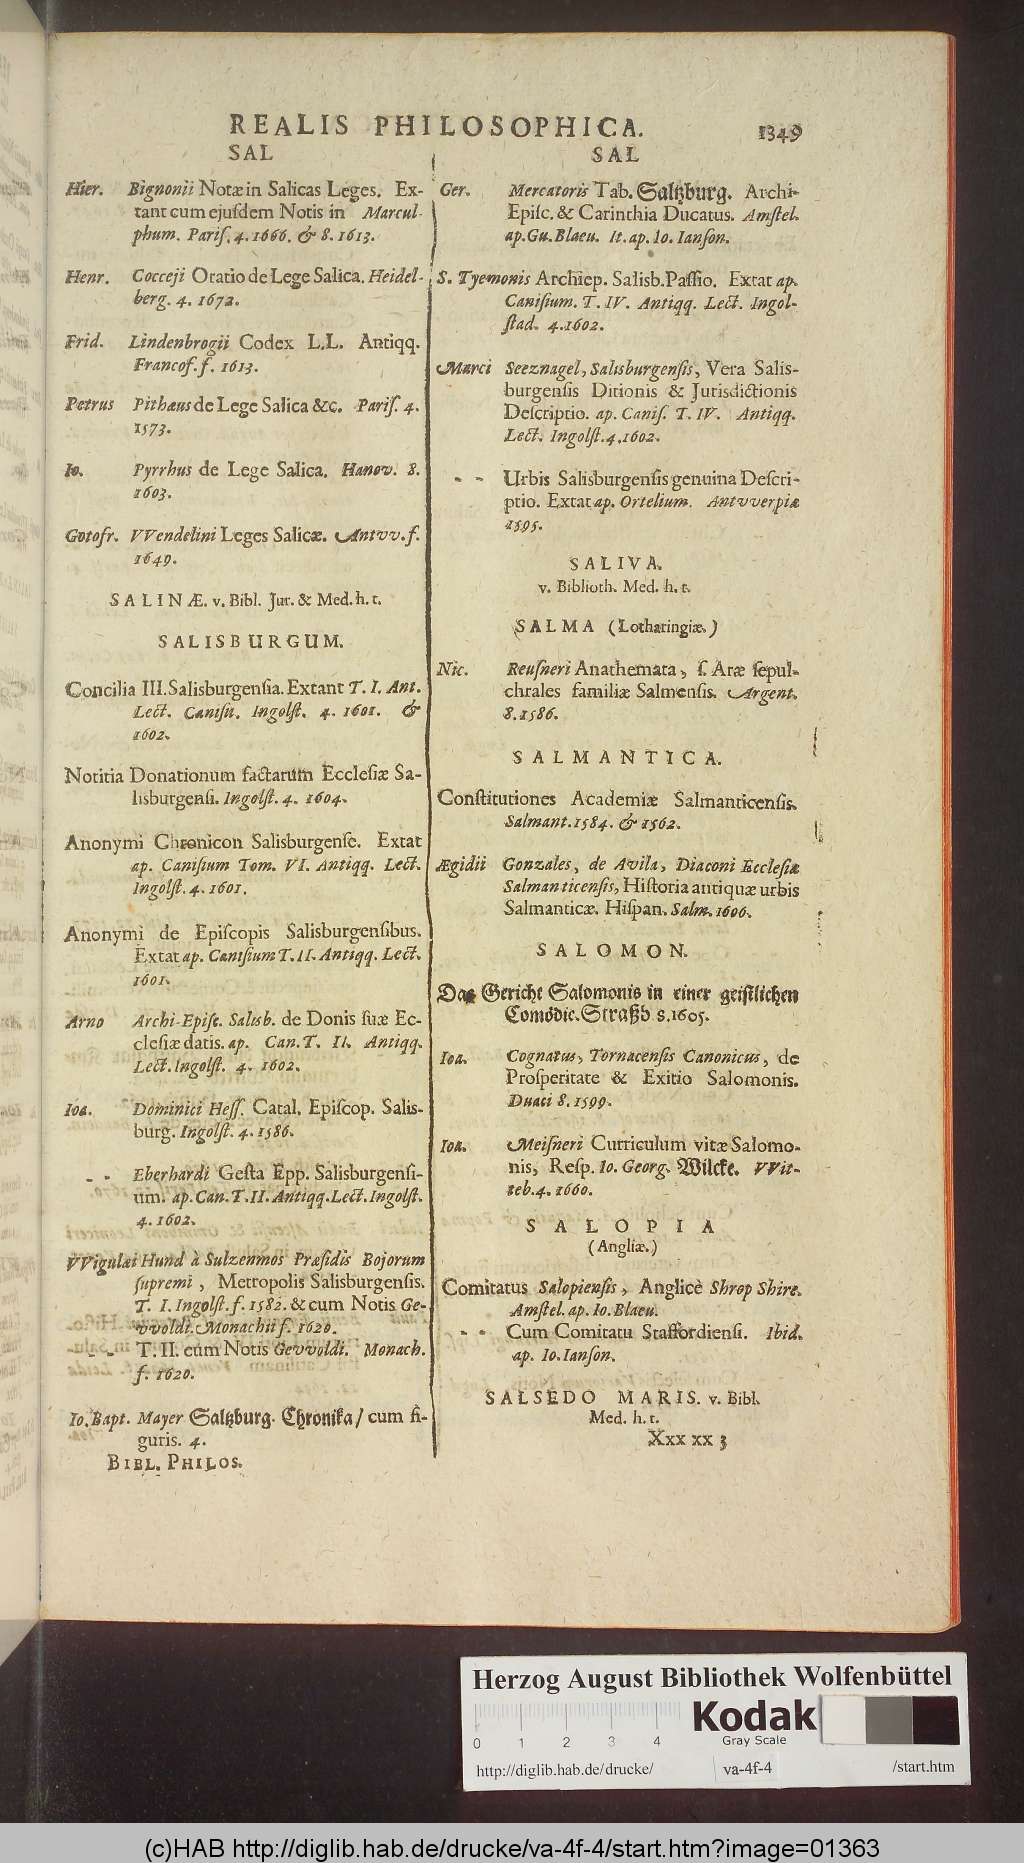 REALIS PHILOSOPHICA. 1349
SAL
Hier. Bignonii Notæ in Salicas Leges. Ex-
tant cum ejuſdem Notis in Marcul-
phum. Pariſ. 4. 1666. & 8. 1613.
Henr. Cocceji Oratio de Lege Salica. Heidel-
berg. 4. 1672.
Frid. Lindenbrogii Codex L.L. Antiqq.
Francof. f. 1613.
Petrus Pithæus de Lege Salica &c. Pariſ. 4.
1573.
Io. Pyrrhus de Lege Salica. Hanov. 8.
1603.
Gotofr. VVendelini Leges Salicæ. Antvv. f.
1649.
SALINÆ. v. Bibl. Jur. & Med. h. t.
SALISBURGUM.
Concilia III. Salisburgenſia. Extant T. I. Ant.
Lect. Caniſii. Ingolſt. 4. 1601. &
1602.
Notitia Donationum factarum Eccleſiæ Sa-
lisburgenſi. Ingolſt. 4. 1604.
Anonymi Chronicon Salisburgenſe. Extat
ap. Caniſium Tom. VI. Antiqq. Lect.
Ingolſt. 4. 1601.
Anonymi de Epiſcopis Salisburgenſibus.
Extat ap. Caniſium T. II. Antiqq. Lect.
1601.
Arno Archi-Epiſc. Salisb. de Donis ſuæ Ec-
cleſiæ datis. ap. Can. T. II. Antiqq.
Lect. Ingolſt. 4. 1602.
Ioa. Dominici Heſſ. Catal. Epiſcop. Salis-
burg. Ingolſt. 4. 1586.
- - Eberhardi Geſta Epp. Salisburgenſi-
um. ap. Can. T. II. Antiqq. Lect. Ingolſt.
4. 1602.
VVigulæi Hund à Sulzenmos Præſidis Bojorum
ſupremi, Metropolis Salisburgenſis.
T. I. Ingolſt. f. 1582. & cum Notis Ge-
vvoldi. Monachii f. 1620.
- - T. II. cum Notis Gevvoldi. Monach.
f. 1620.
Io. Bapt. Mayer Saltzburg. Chronika / cum fi-
guris. 4.
BIBL. PHILOS.
SAL
Ger. Mercatoris Tab. Saltzburg. Archi-
Epiſc. & Carinthia Ducatus. Amſtel.
ap. Gu. Blaeu. It. ap. Io. Ianſon.
S. Tyemonis Archiep. Salisb. Paſſio. Extat ap.
Caniſium. T. IV. Antiqq. Lect. Ingol-
ſtad. 4. 1602.
Marci Seeznagel, Salisburgenſis, Vera Salis-
burgenſis Ditionis & Jurisdictionis
Deſcriptio. ap. Caniſ. T. IV. Antiqq.
Lect. Ingolſt. 4. 1602.
- - Urbis Salisburgenſis genuina Deſcri-
ptio. Extat ap. Ortelium. Antvverpiæ
1595.
SALIVA.
v. Biblioth. Med. h. t.
SALMA (Lotharingiæ.)
Nic. Reuſneri Anathemata, ſ. Aræ ſepul-
chrales familiæ Salmenſis. Argent.
8. 1586.
SALMANTICA.
Conſtitutiones Academiæ Salmanticenſis.
Salmant. 1584. & 1562.
Ægidii Gonzales, de Avila, Diaconi Eccleſiæ
Salmanticenſis, Hiſtoria antiquæ urbis
Salmanticæ. Hiſpan. Salm. 1606.
SALOMON.
Das Gericht Salomonis in einer geiſtlichen
Comödie. Straßb 8. 1605.
Ioa. Cognatus, Tornacenſis Canonicus, de
Proſperitate & Exitio Salomonis.
Duaci 8. 1599.
Ioa. Meiſneri Curriculum vitæ Salomo-
nis, Reſp. Io. Georg. Wilcke. VVit-
teb. 4. 1660.
SALOPIA
(Angliæ.)
Comitatus Salopienſis, Anglicè Shrop Shire.
Amſtel. ap. Io. Blaeu.
- - Cum Comitatu Staffordienſi. Ibid.
ap. Io. Ianſon.
SALSEDO MARIS. v. Bibl.
Med. h. t.
Xxx xx 3
Herzog August Bibliothek Wolfenbüttel
Kodak
Gray Scale
0 1 2 3 4
http://diglib.hab.de/drucke/ va-4f-4 /start.htm
(c)HAB http://diglib.hab.de/drucke/va-4f-4/start.htm?image=01363